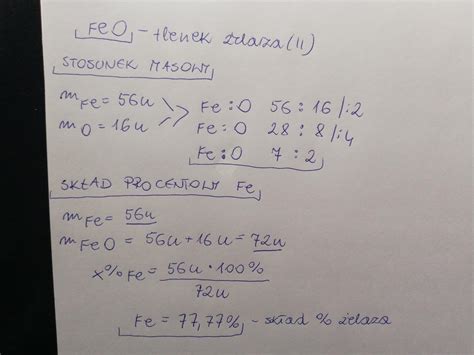 FeO - tlenek żelaza (II)
STOSUNEK MASOWY
mFe = 56u
mO = 16u
Fe : O 56 : 16 /:2
Fe : O 28 : 8 /:4
Fe : O 7 : 2
SKŁAD PROCENTOWY Fe
mFe = 56u
mFeO = 56u + 16u = 72u
x% Fe = 56u · 100%
72u
Fe = 77,77% - skład % żelaza